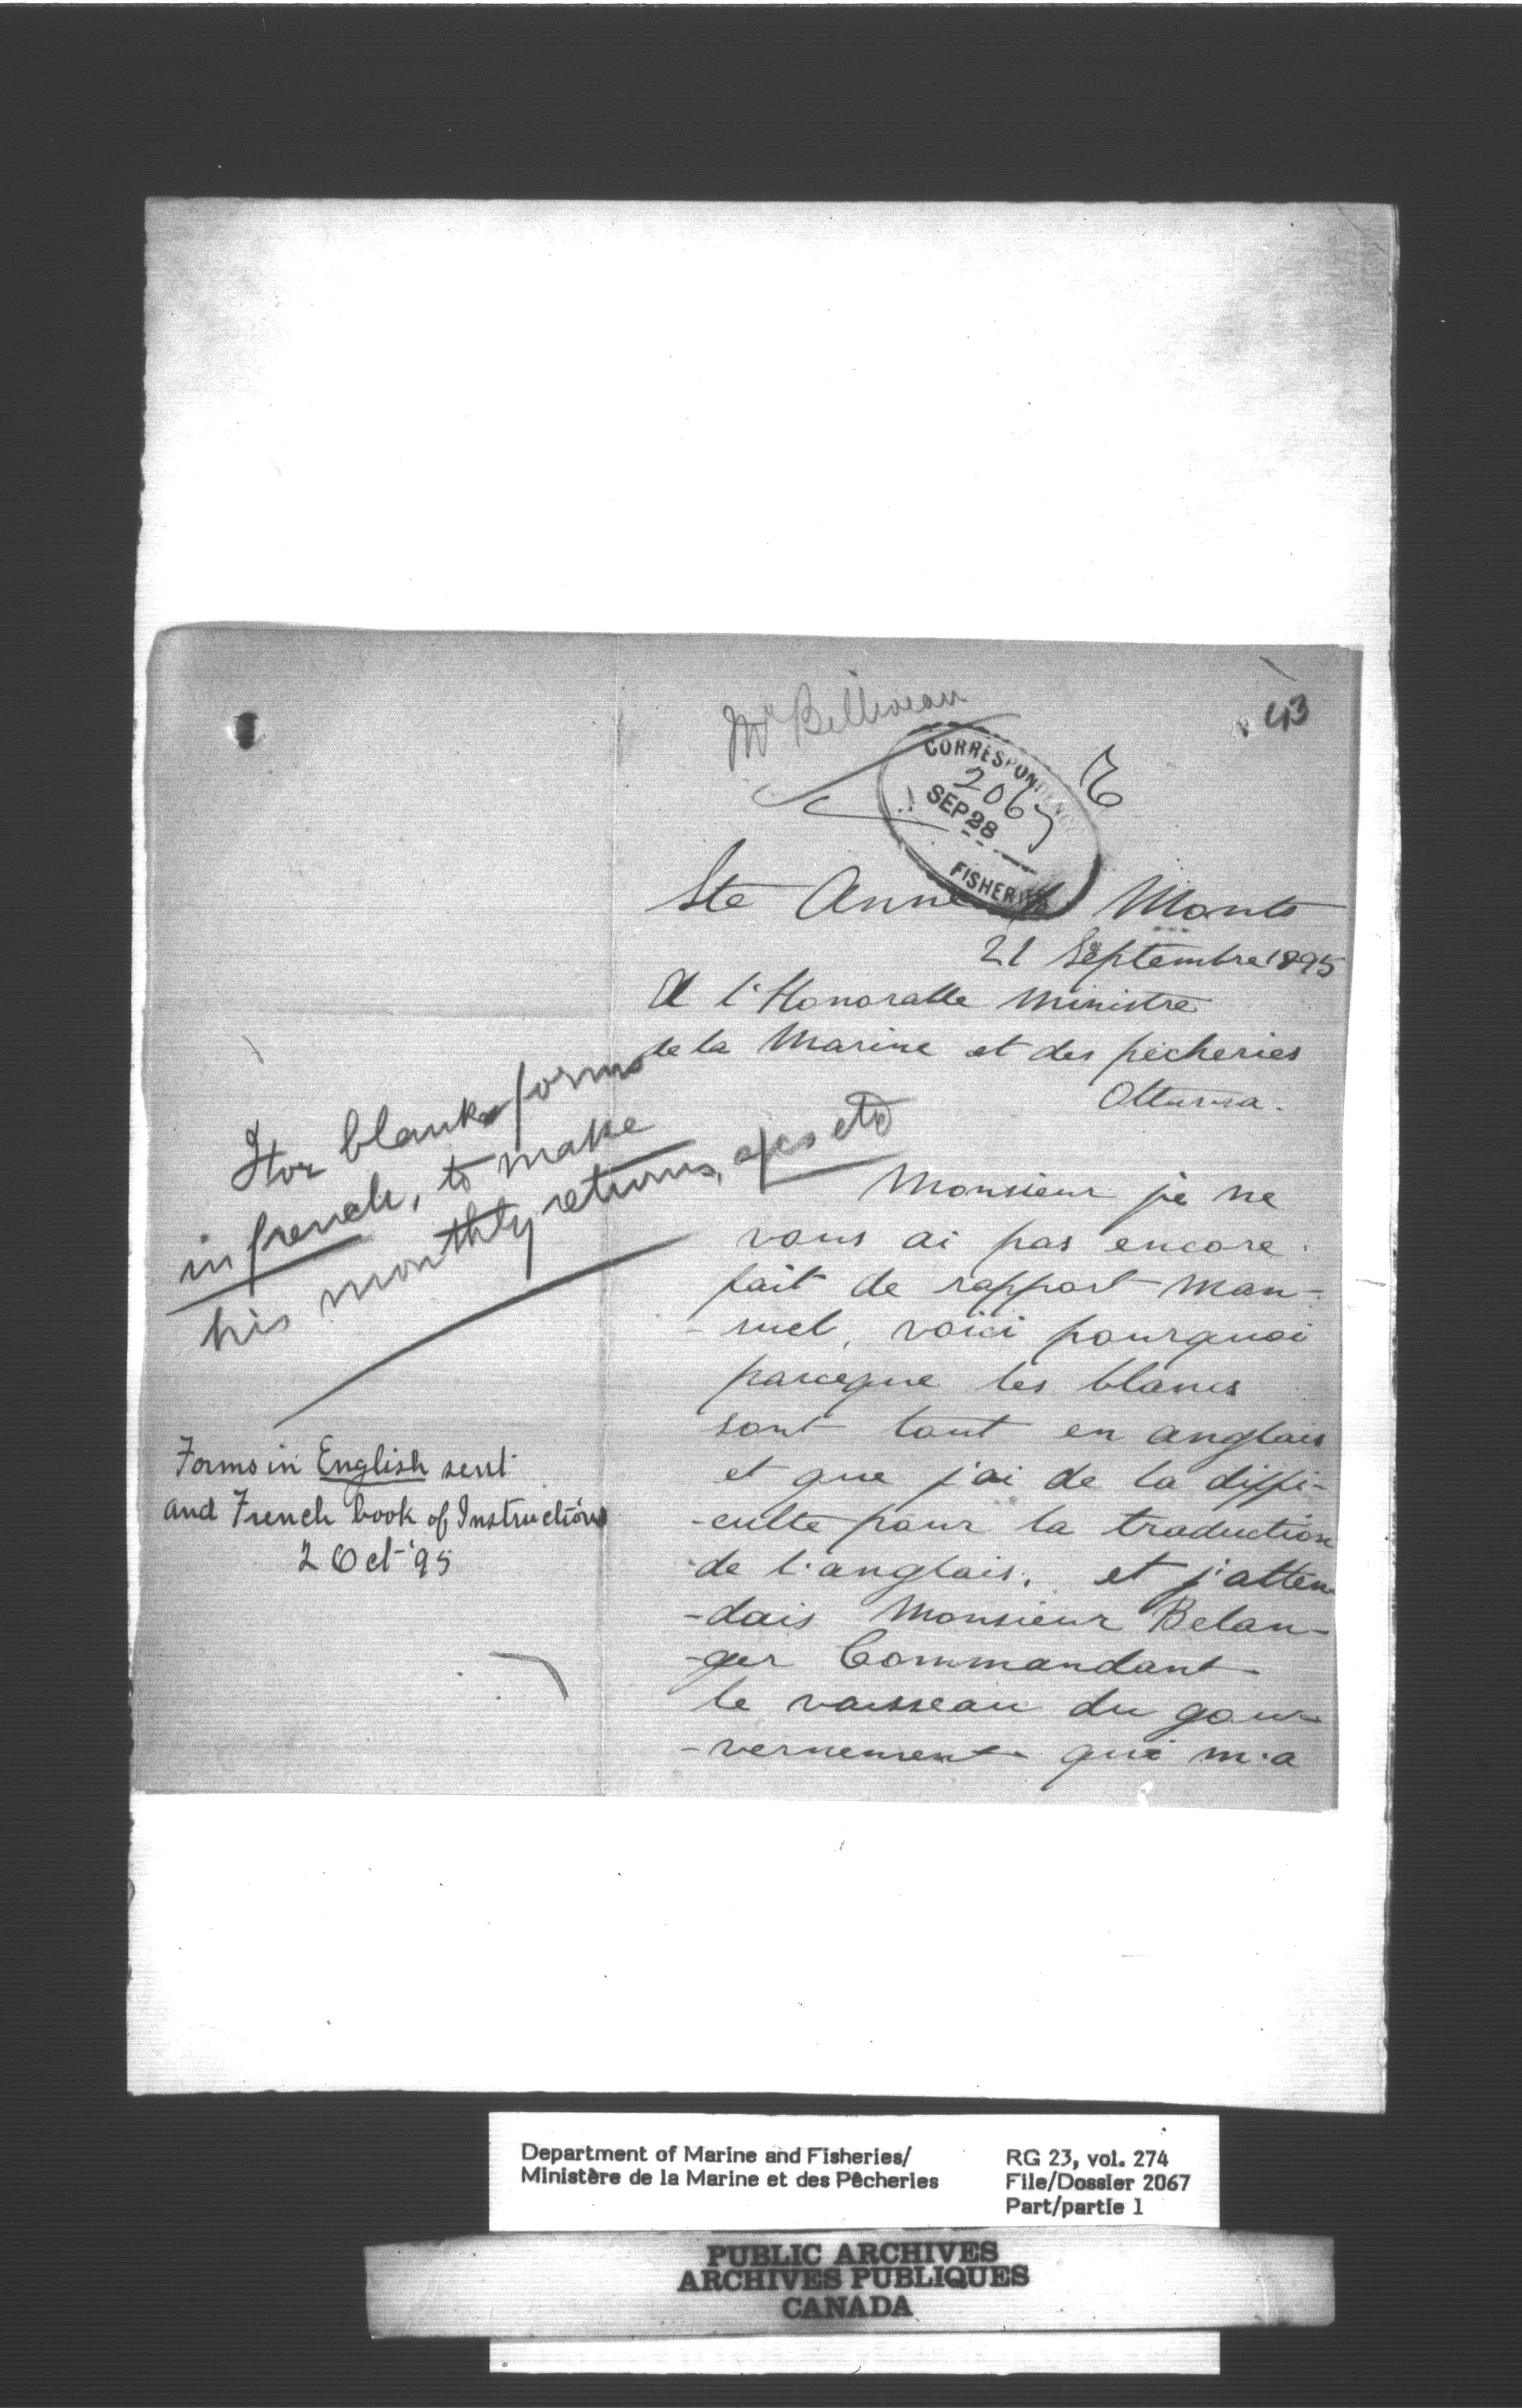 Mr Belliveau
43
CORRESPONDENCE
2067
SEP 28
FISHERIES
Ste Anne Monts
21 Septembre 1895
A l'Honorable Ministre
de la Marine et des pecheries
Ottawa.
Monsieur je ne
vous ai pas encore
fait de rapport man-
-suel, voici pourquoi
parceque les blancs
sont tout en anglais
et que j'ai de la diffi-
-culte pour la traduction
de l'anglais. et j'atten
-dais Monsieur Belan-
-ger Commandant
le vaisseau du gou-
-vernement qui m'a
For blank forms
in french, to make
his monthly returns, etc
Forms in English sent
and French book of Instructions
2 Oct '95
Department of Marine and Fisheries/
Ministère de la Marine et des Pêcheries
RG 23, vol. 274
File/Dossier 2067
Part/partie 1
PUBLIC ARCHIVES
ARCHIVES PUBLIQUES
CANADA